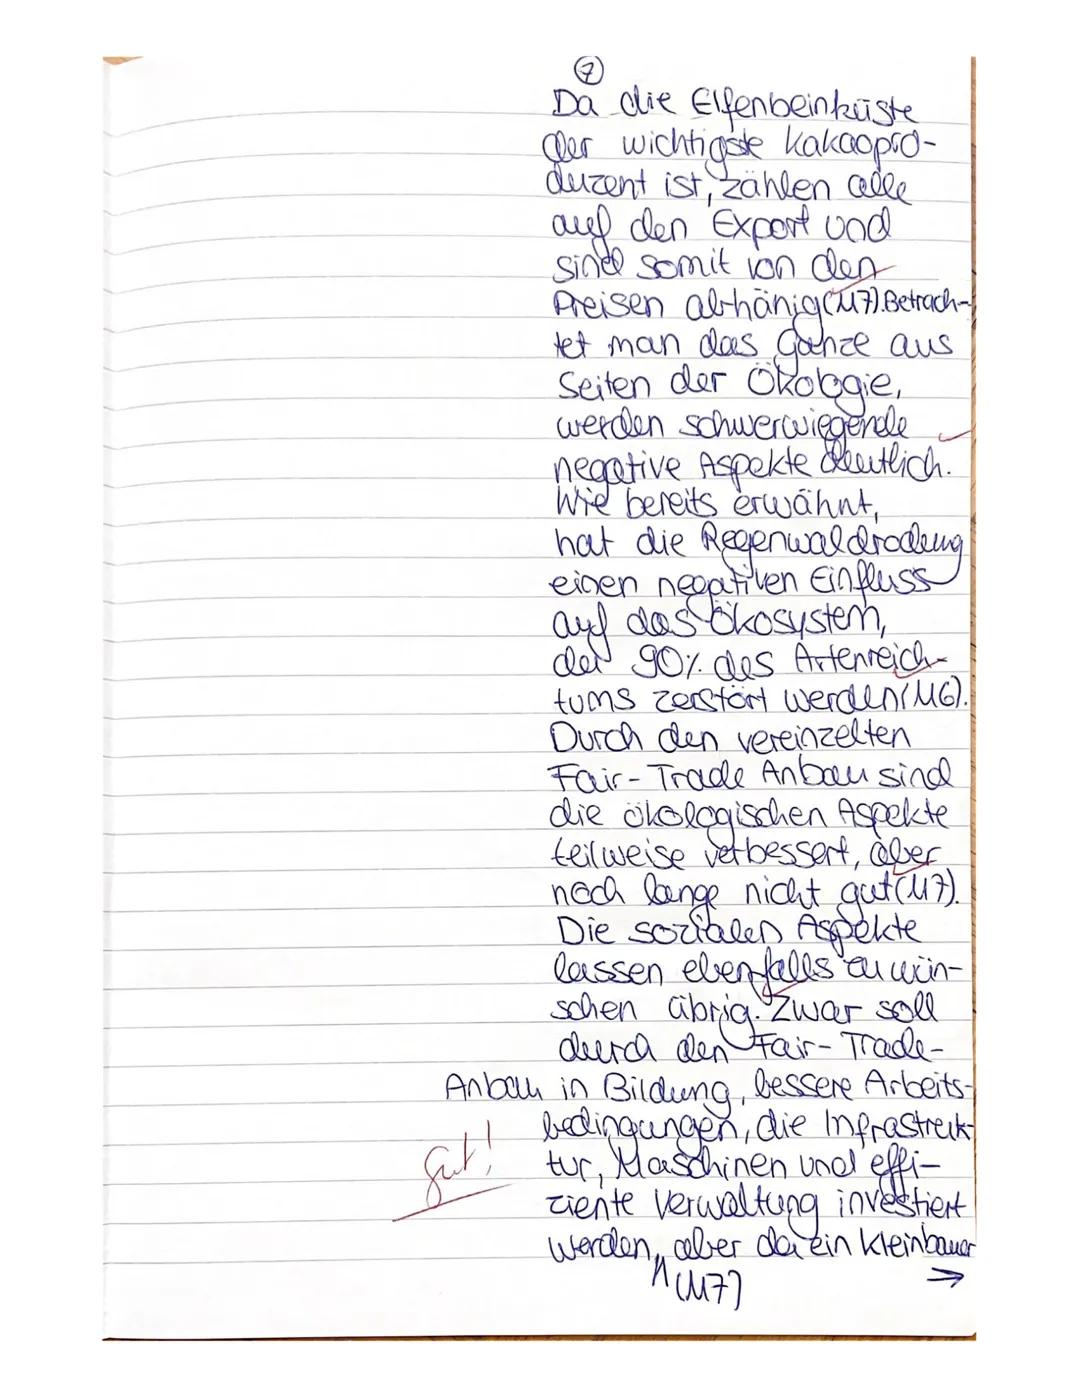 7
Da die Elfenbeinküste
der wichtigste Kakaopro-
duzent ist, zählen alle
auf den Export und
sind somit von den
Preisen abhänig(M7). Betrach-
tet man das Ganze aus
Seiten der Ökologie,
werden schwerwiegende
negative Aspekte deutlich.
Wie bereits erwähnt,
hat die Regenwaldrodung
einen negativen Einfluss
auf das Ökosystem,
da 90% des Artenreich-
tums zerstört werden(M6).
Durch den vereinzelten
Fair-Trade Anbau sind
die ökologischen Aspekte
teilweise verbessert, aber
noch lange nicht gut(M7).
Die sozialen Aspekte
lassen ebenfalls zu wün-
schen übrig. Zwar soll
durch den Fair-Trade-
Anbau in Bildung, bessere Arbeits-
bedingungen, die Infrastruk-
tur, Maschinen und effi-
ziente Verwaltung investiert
werden, aber da ein Kleinbauer
(M7)
gut!